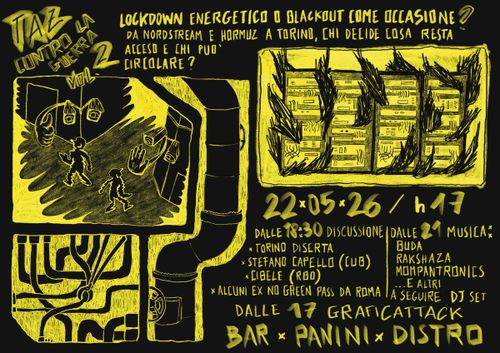 TAZ
CONTRO LA
GUERRA
VOL. 2
LOCKDOWN ENERGETICO O BLACKOUT COME OCCASIONE?
DA NORDSTREAM E HORMUZ A TORINO, CHI DECIDE COSA RESTA
ACCESO E CHI PUO'
CIRCOLARE?
22×05×26 / h 17
DALLE 18:30 DISCUSSIONE
× TORINO DISERTA
× STEFANO CAPELLO (CUB)
× CIBELE (RBO)
× ALCUNI EX NO GREEN PASS DA ROMA
DALLE 21 MUSICA:
BUDA
RAKSHAZA
MOMPANTRONICS
...E ALTRI
A SEGUIRE DJ SET
DALLE 17 GRAFICATTACK
BAR × PANINI × DISTRO